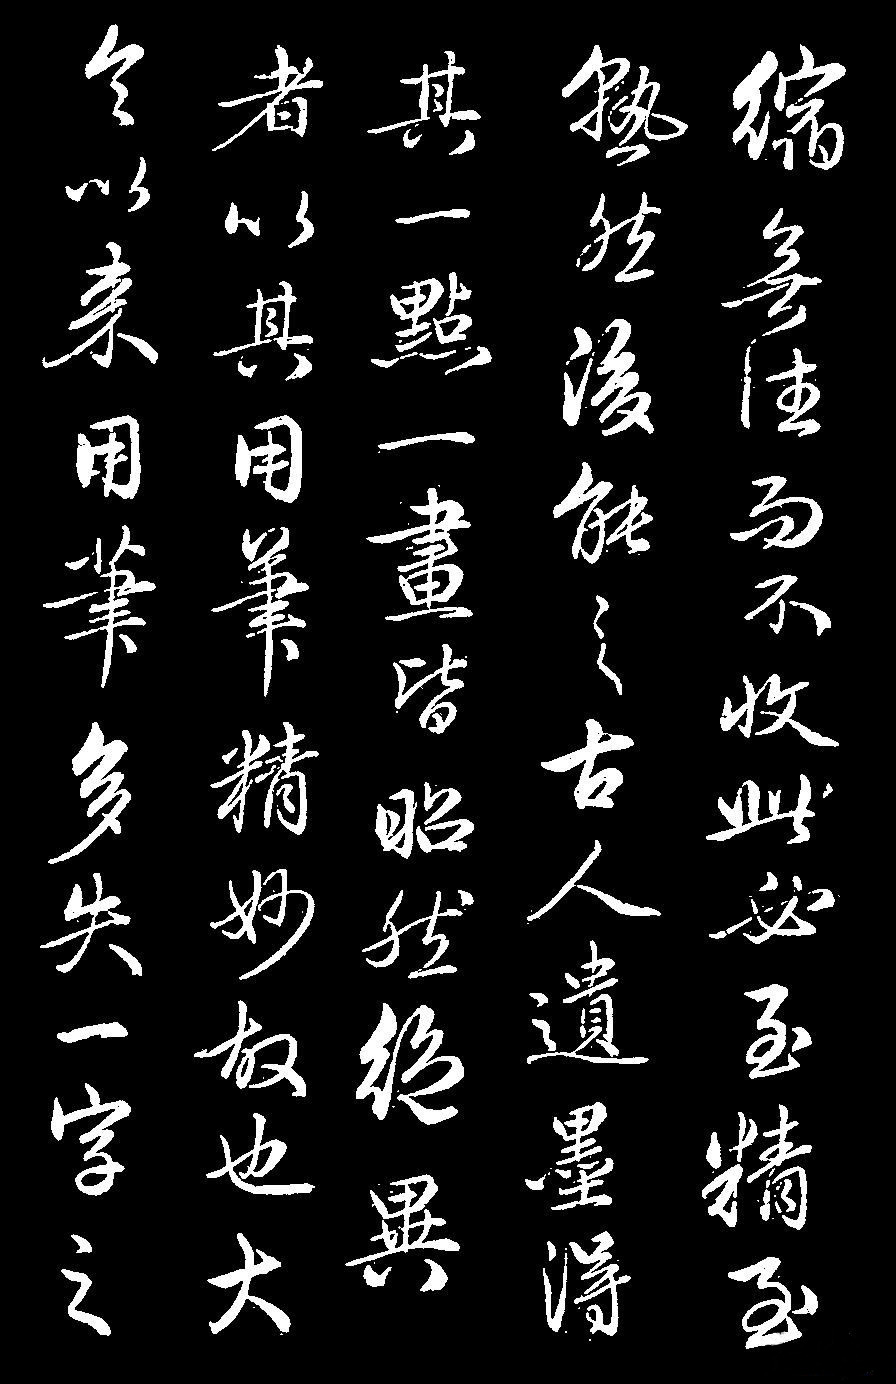 縮無往而不收此必至精至
熟然後能之古人遺墨得
其一點一畫皆昭然絕異
者以其用筆精妙故也大
令以來用筆多失一字之